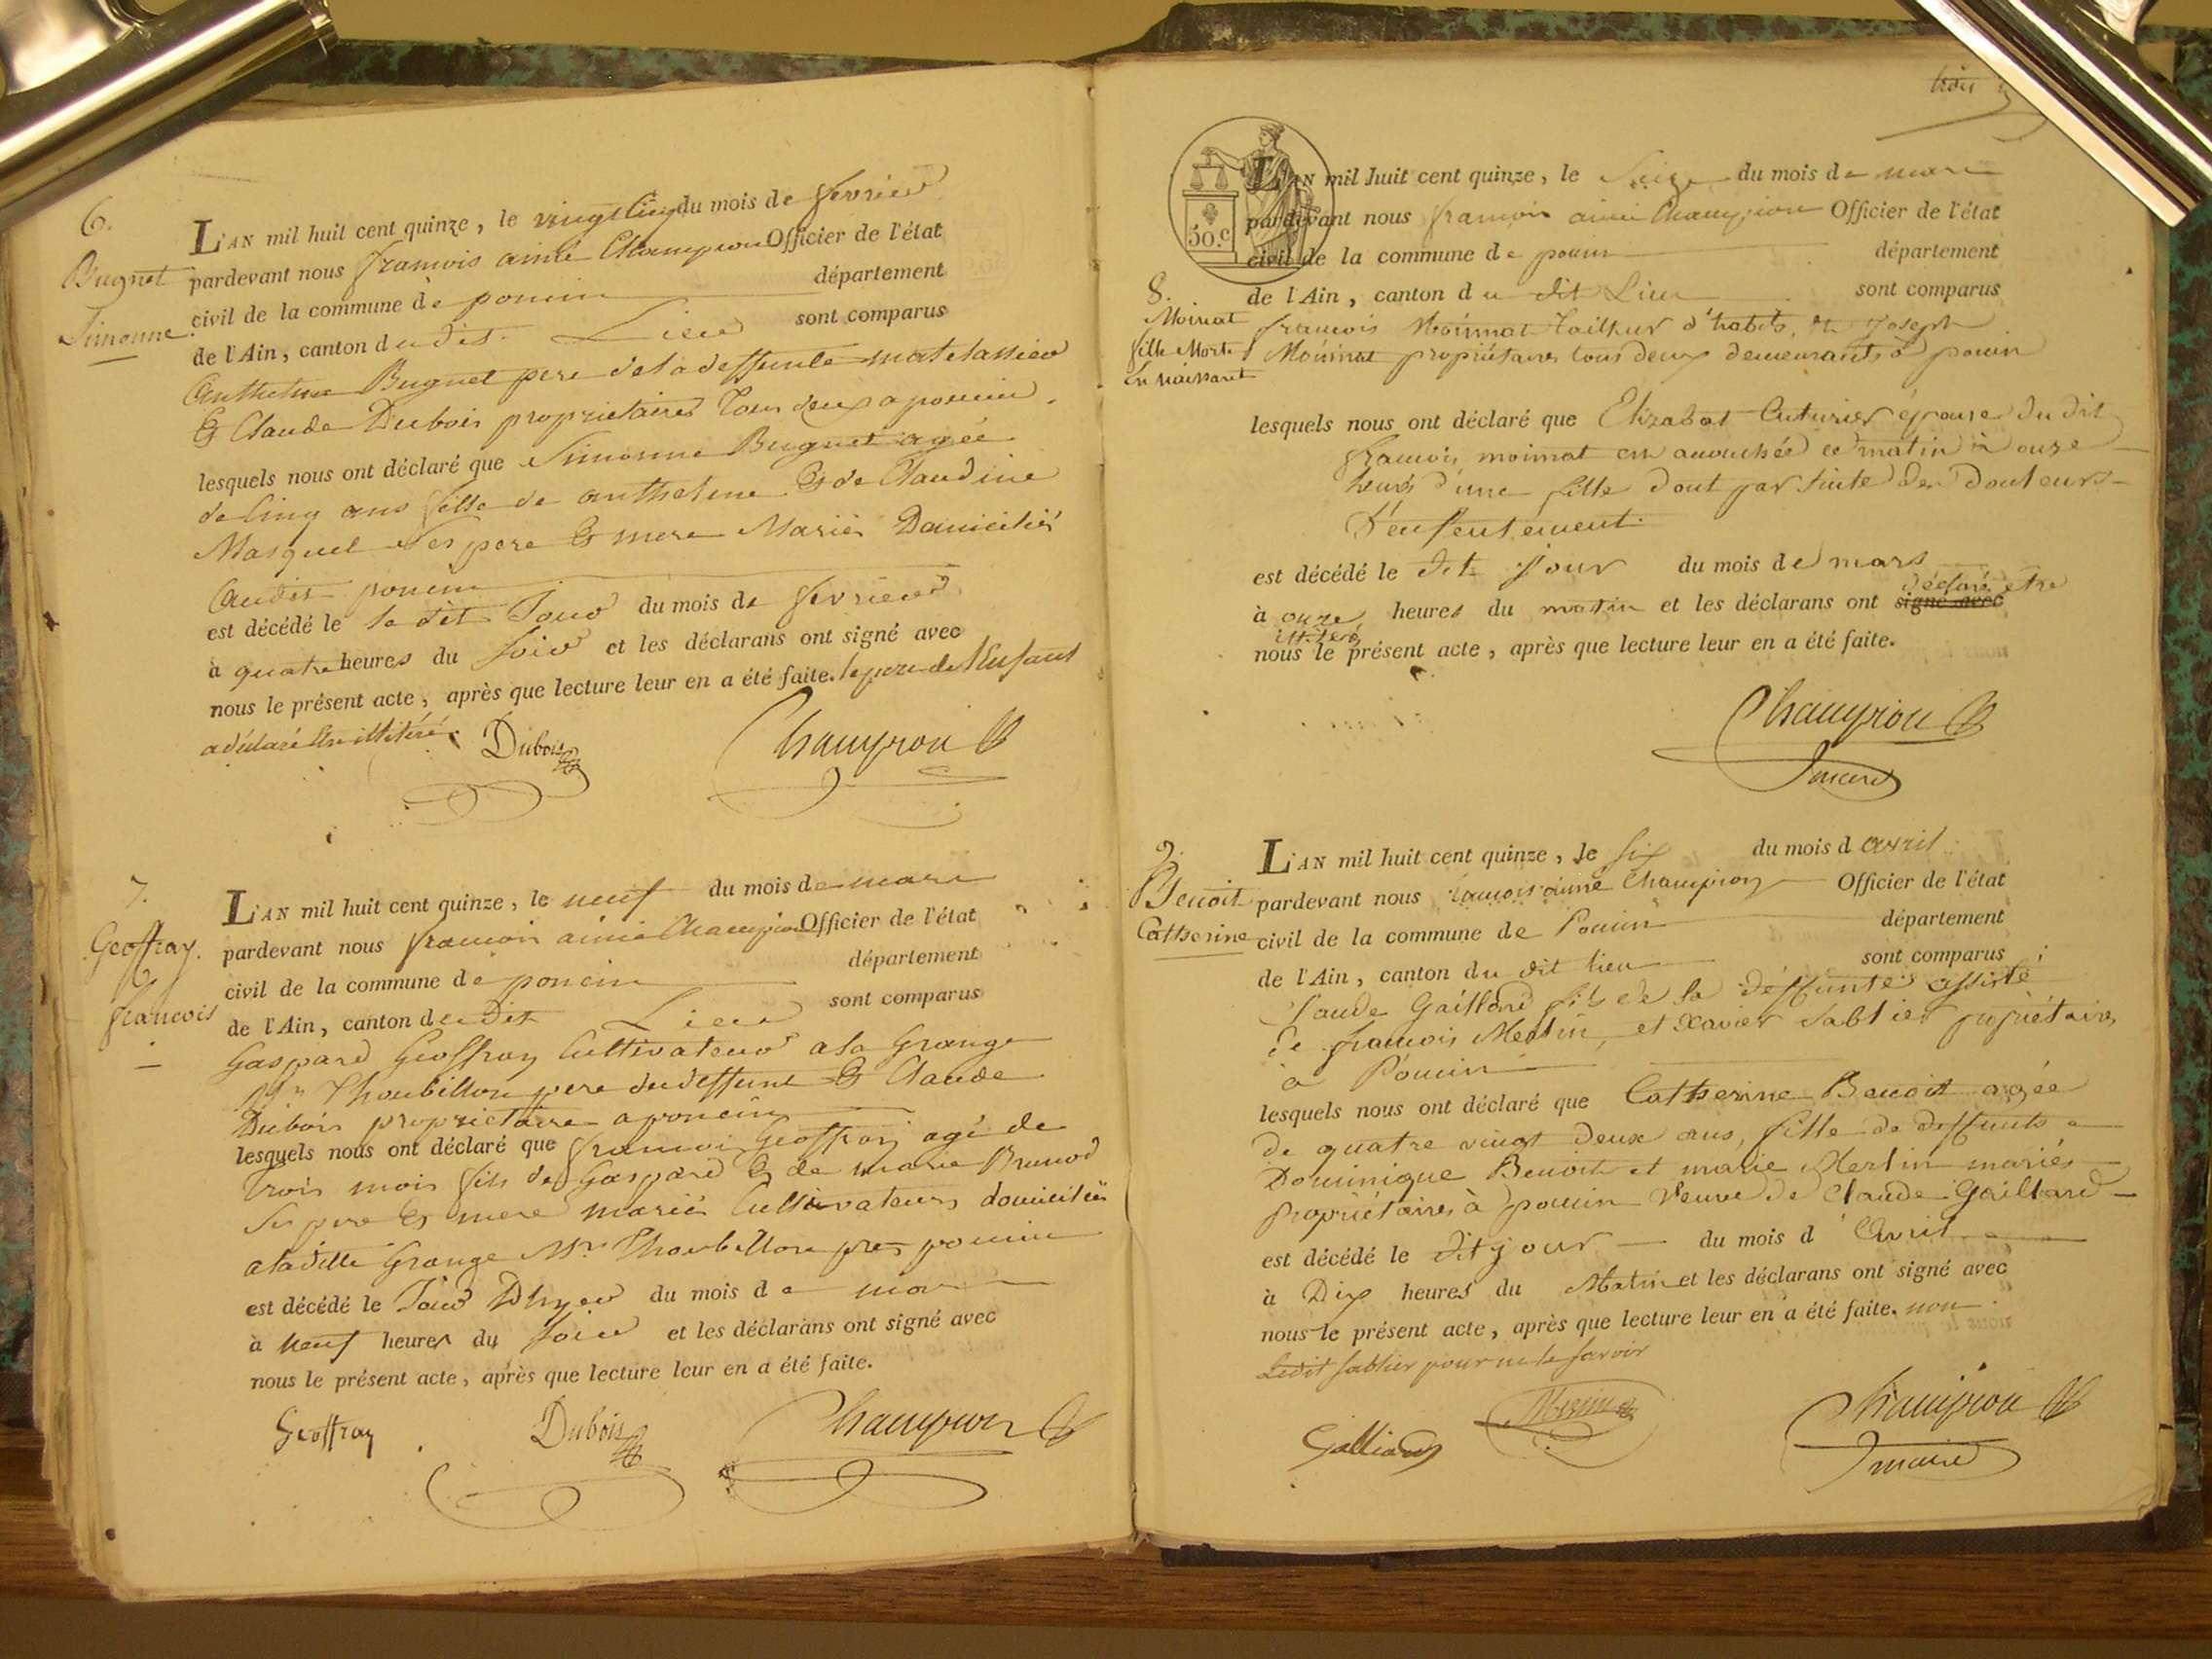 6.
Bugnet
Simonne.
L'AN mil huit cent quinze, le vingt cinq du mois de fevrier
pardevant nous francois aimé Champion Officier de l'état
civil de la commune de poncin département
de l'Ain, canton du dit Lieu sont comparus
Anthelme Bugnet pere de la deffunte matelassier
& Claude Dubois proprietaires tous deux a poncin.
lesquels nous ont déclaré que Simonne Bugnet agée
de cinq ans fille de anthelme & de Claudine
Masquel ses pere & mere Mariés Domiciliés
Audit poncin
est décédé le le dit Jour du mois de fevrier
à quatre heures du soir et les déclarans ont signé avec
nous le présent acte, après que lecture leur en a été faite. le pere de l'Enfant
a déclaré être illitéré.
Dubois Champion
7.
Geoffray.
francois
L'AN mil huit cent quinze, le neuf du mois de mars
pardevant nous francois aimé Champion Officier de l'état
civil de la commune de poncin département
de l'Ain, canton du dit Lieu sont comparus
Gaspard Geoffray Cultivateur a la Grange
Mr Thoubillon pere du deffunt & Claude
Dubois proprietaire a poncin
lesquels nous ont déclaré que francois Geoffray agé de
trois mois fils de Gaspard & de marie Brunod
ses pere & mere mariés Cultivateurs domiciliés
a ladite Grange Mr Thoubillon pres poncin
est décédé le Jour D'hyer du mois de mars
à neuf heures du soir et les déclarans ont signé avec
nous le présent acte, après que lecture leur en a été faite.
Geoffray Dubois Champion
trois
50.c
8.
Moinat
fille Morte
en naissant
L'AN mil huit cent quinze, le Seize du mois de mars
pardevant nous francois aimé Champion Officier de l'état
civil de la commune de poncin département
de l'Ain, canton du dit Lieu sont comparus
francois Moinnat tailleur d'habits, et Joseph
Moinnat propriétaires tous deux demeurants à poncin
lesquels nous ont déclaré que Elizabet Cuturier épouse du dit
francois moinnat est accouchée ce matin à onze
heures d'une fille dont par suite des douleurs
D'enfentement
est décédé le dit jour du mois de mars
à onze heures du matin et les déclarans ont signé avec déclaré être
illiteré
nous le présent acte, après que lecture leur en a été faite.
Champion
maire
9.
Benoit
Catherine
L'AN mil huit cent quinze, le six du mois d avril
pardevant nous francois aimé Champion Officier de l'état
civil de la commune de Poncin département
de l'Ain, canton du dit lieu sont comparus
Claude Gaillard fils de la déffunte assisté
de francois Merlin, et Xavier Sablier propriétaires
a Poncin
lesquels nous ont déclaré que Catherine Benoit agée
de quatre vingt deux ans, fille de deffunts
Dominique Benoit et marie Merlin mariés
propriétaires à poncin Veuve de Claude Gaillard
est décédé le dit jour du mois d'Avril
à Dix heures du Matin et les déclarans ont signé avec
nous le présent acte, après que lecture leur en a été faite. non
Ledit Sablier pour ne le savoir
Galliard Merlin Champion
maire